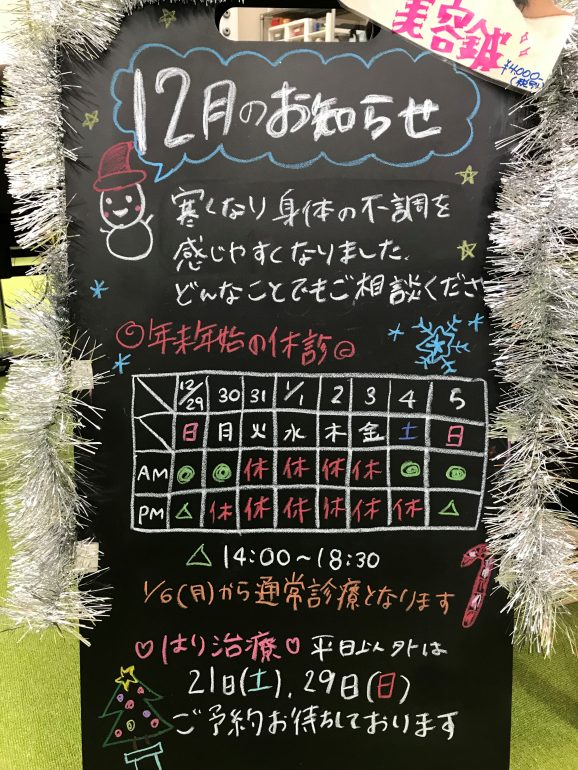 美容鍼
¥4,000-
12月のお知らせ
寒くなり身体の不調を
感じやすくなりました。
どんなことでもご相談くださ
◎年末年始の休診◎
12/29 30 31 1/1 2 3 4 5
日 月 火 水 木 金 土 日
AM ◎ ◎ 休 休 休 休 ◎ ◎
PM △ 休 休 休 休 休 休 △
△ 14:00~18:30
1/6(月)から通常診療となります
♡はり治療♡ 平日以外は
21日(土)、29日(日)
ご予約お待ちしております